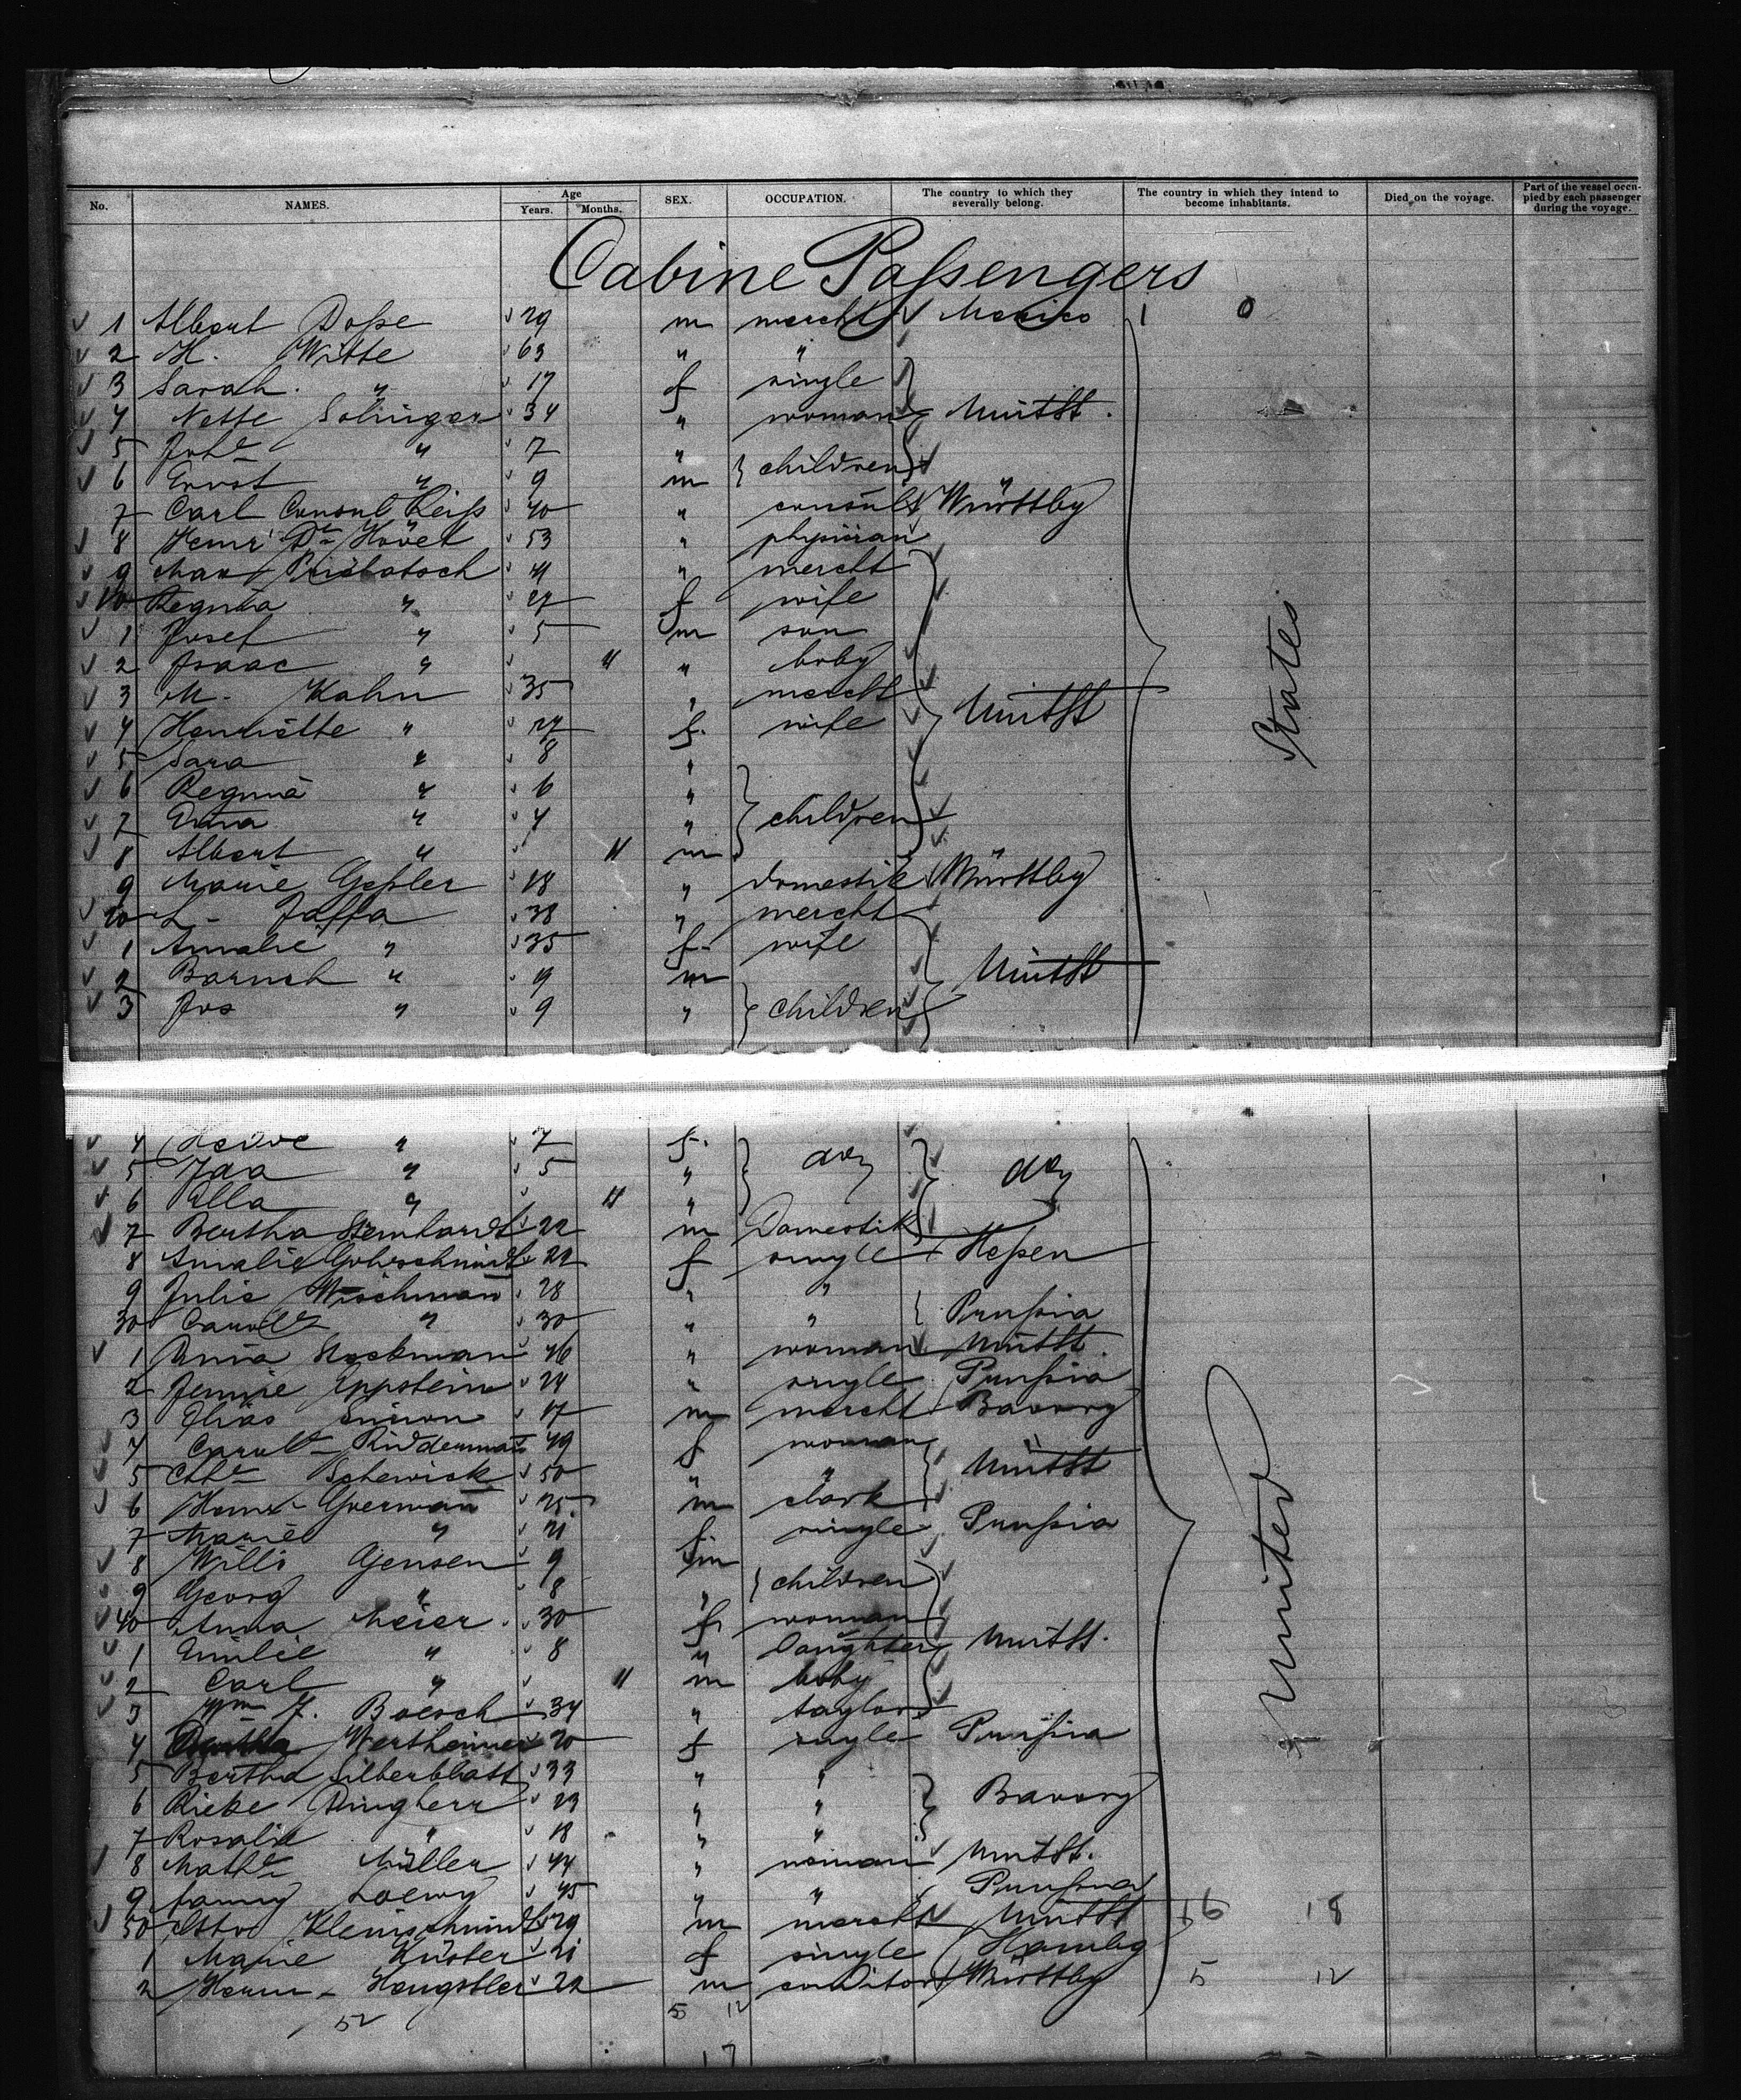 No. NAMES. Age Years. Months. SEX. OCCUPATION. The country to which they severally belong. The country in which they intend to become inhabitants. Died on the voyage. Part of the vessel occupied by each passenger during the voyage.
Cabine Passengers
1 Albert Dosse 29 m mercht Mexico 0
2 H. Witte 63 " "
3 Sarah " 17 f single
4 Nette Solinger 34 " woman Unit St.
5 Joh " 7 "
6 Ernst " 9 m children
7 Carl Consul Leiss 40 " consul Württbg
8 Henri Dr Hövet 53 " physician
9 Max Priebatsch 41 " mercht
10 Regina " 27 f wife
1 Josef " 5 m son
2 Isaac " 11 " baby
3 M. Kahn 35 " mercht Unit St
4 Henriette " 27 f. wife
5 Sara " 8 "
6 Regina " 6 "
7 Emma " 4 " children
8 Albert " 11 m
9 Marie Gessler 18 " domestik Württbg
20 L. Jaffa 38 " mercht
1 Amalie " 35 f wife Unit St
2 Baruch " 9 m
3 Jos " 9 " children
States
4 " 7 f.
5 Ida " 5 " do do
6 Ella " 11 "
7 Bertha Steinhardt 22 m Domestik
8 Amalie Gohrschmidt 22 f single Hessen
9 Julie Wischman 28 " "
30 " 30 " " Prussia
1 Anna Stockman 46 " woman Unit St.
2 Jennie Eppstein 24 " single Prussia
3 Elias Simon 17 m mercht Bavary
4 Ridderman 49 f woman Unit St
5 Schewick 50 " "
6 Goerman 25 m clark
7 Marie " 21 f single Prussia
8 Willi Gjensen 9 m
9 Georg " 8 " children
40 Anna Meier 30 f woman
1 Emilie " 8 " Daughter Unit St.
2 Carl " 11 m baby
3 Wm F. Boesch 34 " taylor
4 Wertheimer 20 f single Prussia
5 Bertha Silberblatt 33 " "
6 Rieke Dingherr 23 " " Bavary
7 Rosalie " 18 " "
8 Math Müller 44 " woman Unit St.
9 Fanny Loewy 45 " " Prussia
50 Otto Kleinschmidt 29 m mercht Unit St 16 18
1 Marie Küster 21 f single Hambg
2 Herm Hengstler 22 m conditor Württbg 5 12
United
52 5 12
17